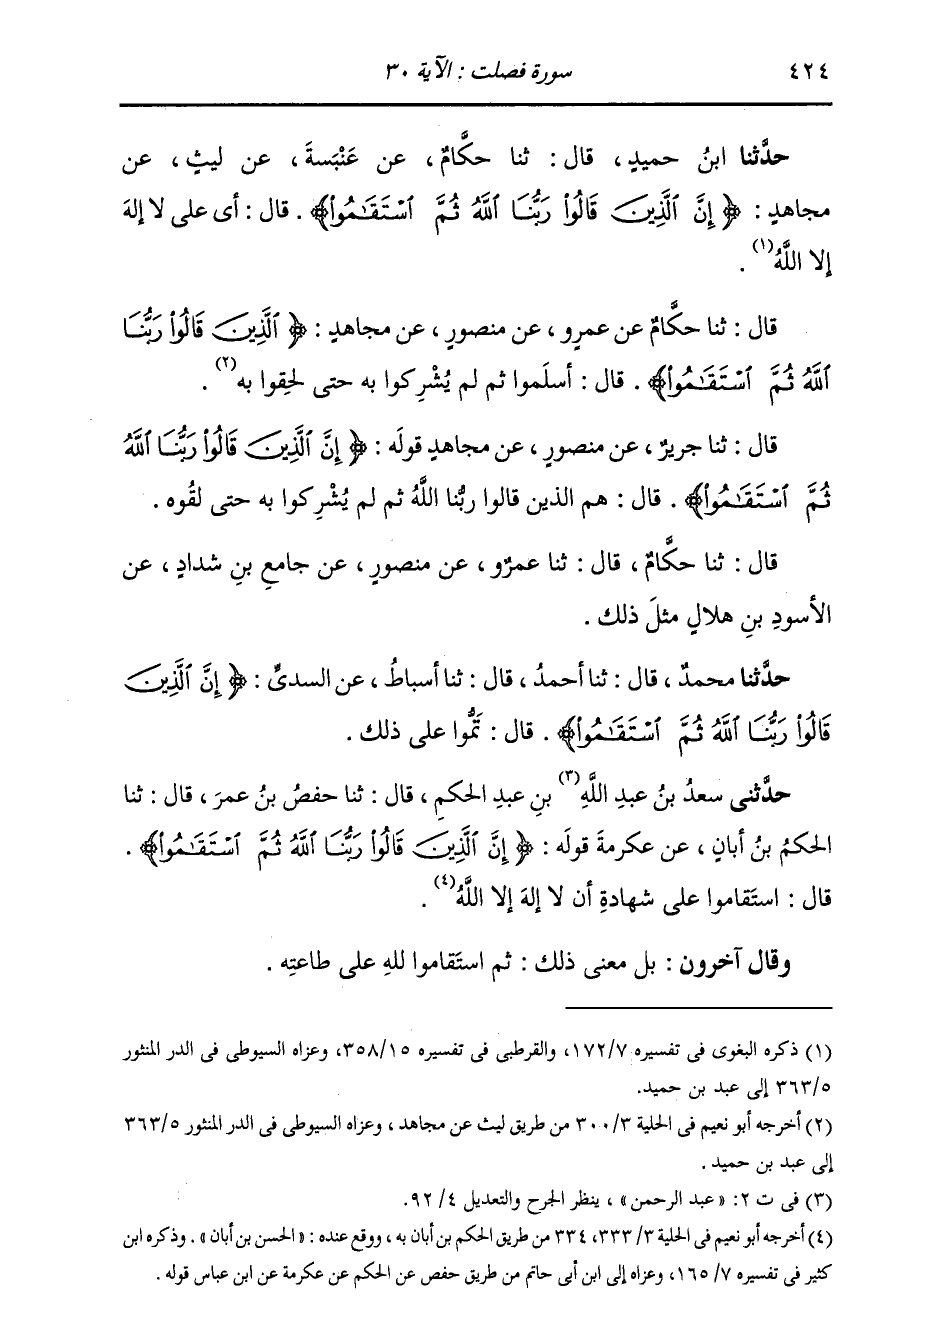 ٤٢٤ سورة فصلت : الآية ٣٠
حدَّثنا ابنُ حميدٍ ، قال : ثنا حكَّامٌ ، عن عَنْبَسةَ ، عن ليثٍ ، عن
مجاهدٍ : ﴿ إِنَّ ٱلَّذِينَ قَالُوا۟ رَبُّنَا ٱللَّهُ ثُمَّ ٱسْتَقَـٰمُوا۟﴾ . قال : أى على لا إلهَ
إلا اللَّهُ(١) .
قال : ثنا حكَّامٌ عن عمرٍو ، عن منصورٍ ، عن مجاهدٍ : ﴿ ٱلَّذِينَ قَالُوا۟ رَبُّنَا
ٱللَّهُ ثُمَّ ٱسْتَقَـٰمُوا۟﴾ . قال : أسلَموا ثم لم يُشْرِكوا به حتى لحِقوا به(٢) .
قال : ثنا جريرٌ ، عن منصورٍ ، عن مجاهدٍ قولَه : ﴿ إِنَّ ٱلَّذِينَ قَالُوا۟ رَبُّنَا ٱللَّهُ
ثُمَّ ٱسْتَقَـٰمُوا۟﴾ . قال : هم الذين قالوا ربُّنا اللَّهُ ثم لم يُشْرِكوا به حتى لقُوه .
قال : ثنا حكَّامٌ ، قال : ثنا عمرٌو ، عن منصورٍ ، عن جامعِ بنِ شدادٍ ، عن
الأسودِ بنِ هلالٍ مثلَ ذلك .
حدَّثنا محمدٌ ، قال : ثنا أحمدُ ، قال : ثنا أسباطُ ، عن السدىِّ : ﴿ إِنَّ ٱلَّذِينَ
قَالُوا۟ رَبُّنَا ٱللَّهُ ثُمَّ ٱسْتَقَـٰمُوا۟﴾ . قال : تَمُّوا على ذلك .
حدَّثنى سعدُ بنُ عبدِ اللَّهِ(٣) بنِ عبدِ الحكمِ ، قال : ثنا حفصُ بنُ عمرَ ، قال : ثنا
الحكمُ بنُ أبانٍ ، عن عكرمةَ قولَه : ﴿ إِنَّ ٱلَّذِينَ قَالُوا۟ رَبُّنَا ٱللَّهُ ثُمَّ ٱسْتَقَـٰمُوا۟﴾ .
قال : استَقاموا على شهادةِ أن لا إلهَ إلا اللَّهُ(٤) .
وقال آخرون : بل معنى ذلك : ثم استَقاموا للهِ على طاعتِه .
(١) ذكره البغوى فى تفسيره ١٧٢/٧، والقرطبى فى تفسيره ٣٥٨/١٥، وعزاه السيوطى فى الدر المنثور
٣٦٣/٥ إلى عبد بن حميد.
(٢) أخرجه أبو نعيم فى الحلية ٣٠٠/٣ من طريق ليث عن مجاهد ، وعزاه السيوطى فى الدر المنثور ٣٦٣/٥
إلى عبد بن حميد .
(٣) فى ت ٢: «عبد الرحمن» ، ينظر الجرح والتعديل ٩٢/٤.
(٤) أخرجه أبو نعيم فى الحلية ٣٣٣/٣، ٣٣٤ من طريق الحكم بن أبان به ، ووقع عنده : «الحسن بن أبان» . وذكره ابن
كثير فى تفسيره ١٦٥/٧، وعزاه إلى ابن أبى حاتم من طريق حفص عن الحكم عن عكرمة عن ابن عباس قوله .